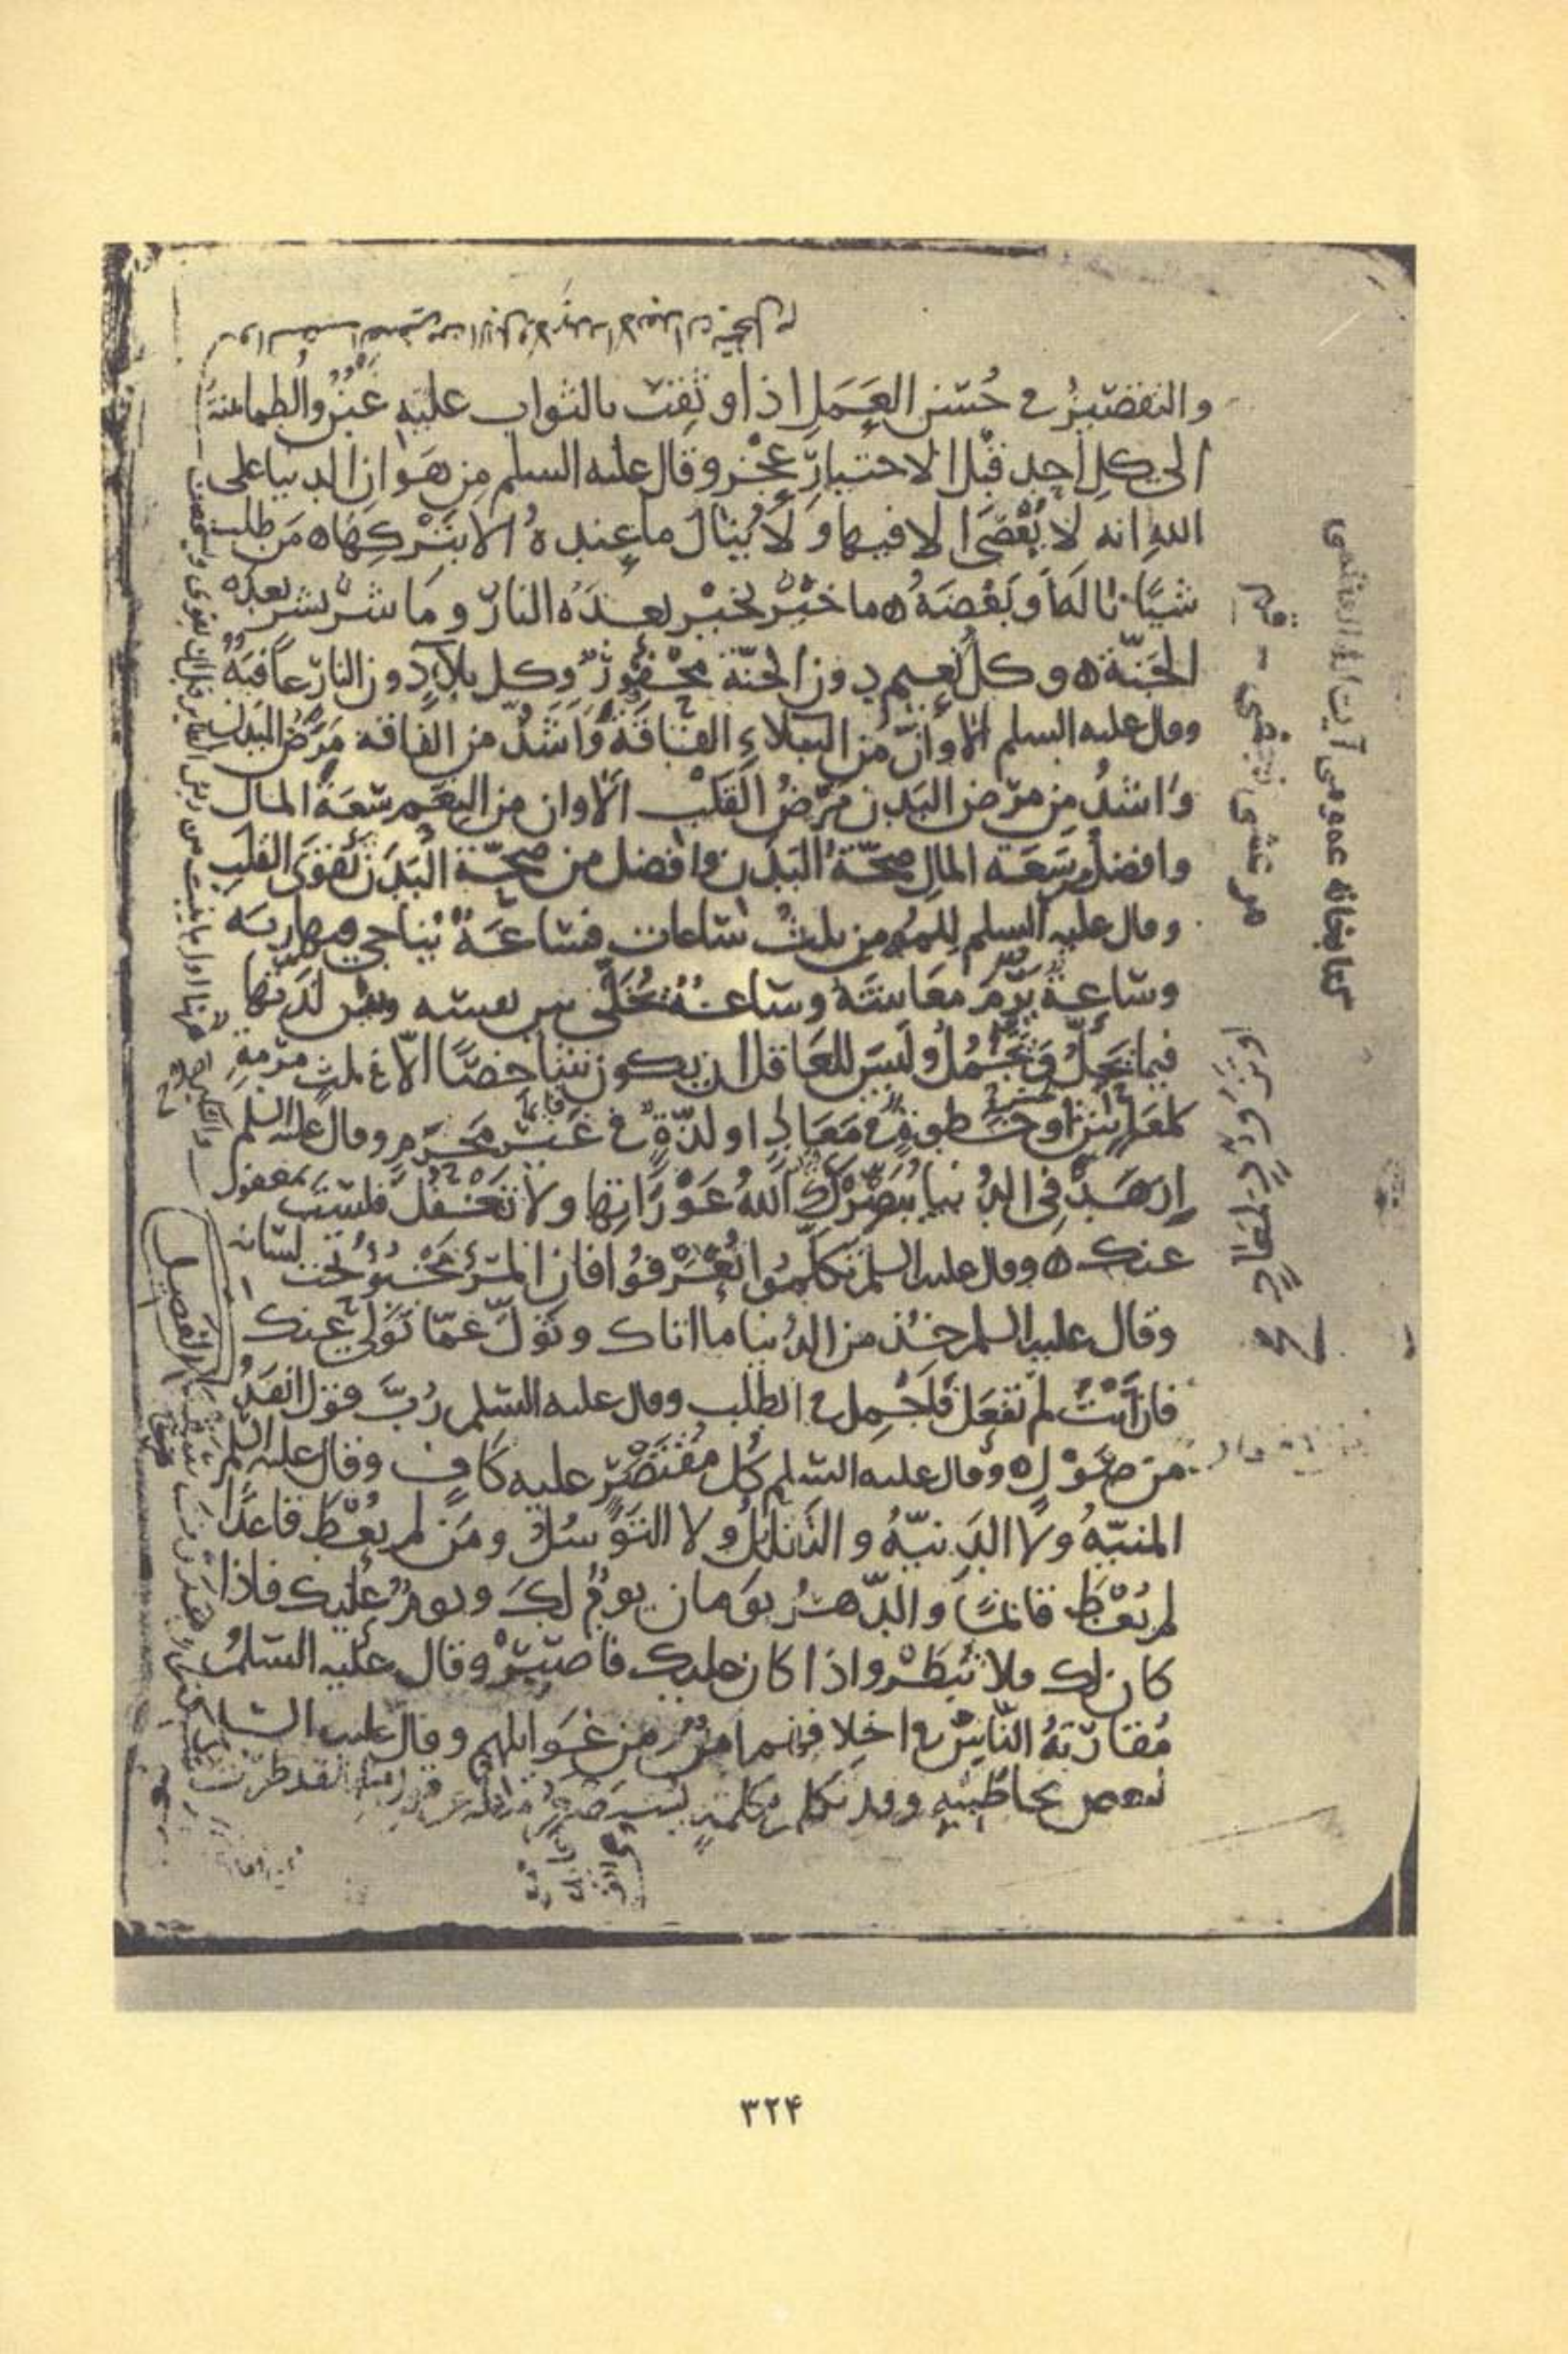 والتقصير في حسن العمل اذا وثقت بالثواب عليه غبن والطمانينة
الى كل احد قبل الاختبار عجز وقال عليه السلم من هوان الدنيا على
الله انه لا يعصى الا فيها ولا ينال ما عنده الا بتركها ه من طلب
شيئا ناله او بعضه ه ما خير بخير بعده النار وما شر بشر بعده
الجنة ه وكل نعيم دون الجنة محقور وكل بلاء دون النار عافية
وقال عليه السلم الا وان من البلاء الفاقة واشد من الفاقة مرض البدن
واشد من مرض البدن مرض القلب الا وان من النعم سعة المال
وافضل من سعة المال صحة البدن وافضل من صحة البدن تقوى القلب
وقال عليه السلم للمؤمن ثلث ساعات فساعة يناجي فيها ربه
وساعة يرم معاشه وساعة يخلي بين نفسه وبين لذتها
فيما يحل ويجمل وليس للعاقل ان يكون شاخصا الا في ثلث مرمة
لمعاش او خطوة في معاد او لذة في غير محرم وقال عليه السلم
ازهد في الدنيا يبصرك الله عوراتها ولا تغفل فلست بمغفول
عنك ه وقال عليه السلم تكلموا تعرفوا فان المرء مخبوء تحت لسانه
وقال عليه السلم خذ من الدنيا ما اتاك وتول عما تولى عنك
فان انت لم تفعل فاجمل في الطلب وقال عليه السلم رب قول انفذ
من صول ه وقال عليه السلم كل مقتصر عليه كاف وقال عليه السلم
المنية ولا الدنية والتقلل ولا التوسل ومن لم يعط قاعدا
لم يعط قائما والدهر يومان يوم لك ويوم عليك فاذا
كان لك فلا تبطر واذا كان عليك فاصبر وقال عليه السلم
مقاربة الناس في اخلاقهم امن من غوائلهم وقال عليه السلم
لبعض مخاطبيه وقد تكلم بكلمة يستصغر مثله عن قول مثلها لقد طرت
كتابخانه عمومى آيت الله العظمى
مرعشى نجفى - قم
او تزود لمعاد
٣٢۴